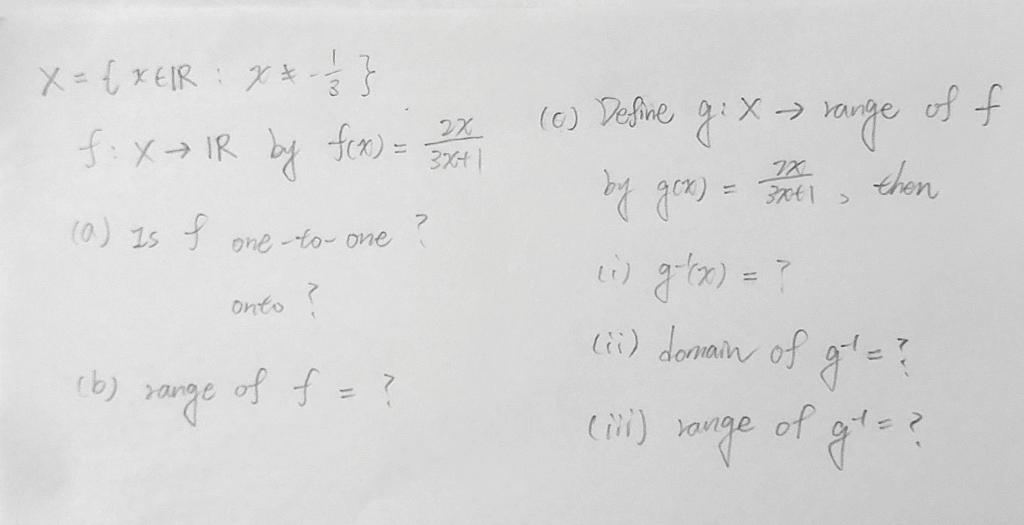 X = { x ∈ ℝ : x ≠ -1/3 }
f : X → ℝ by f(x) = 2x/3x+1
(a) Is f one-to-one ?
onto ?
(b) range of f = ?
(c) Define g : X → range of f
by g(x) = 2x/3x+1 , then
(i) g⁻¹(x) = ?
(ii) domain of g⁻¹ = ?
(iii) range of g⁻¹ = ?